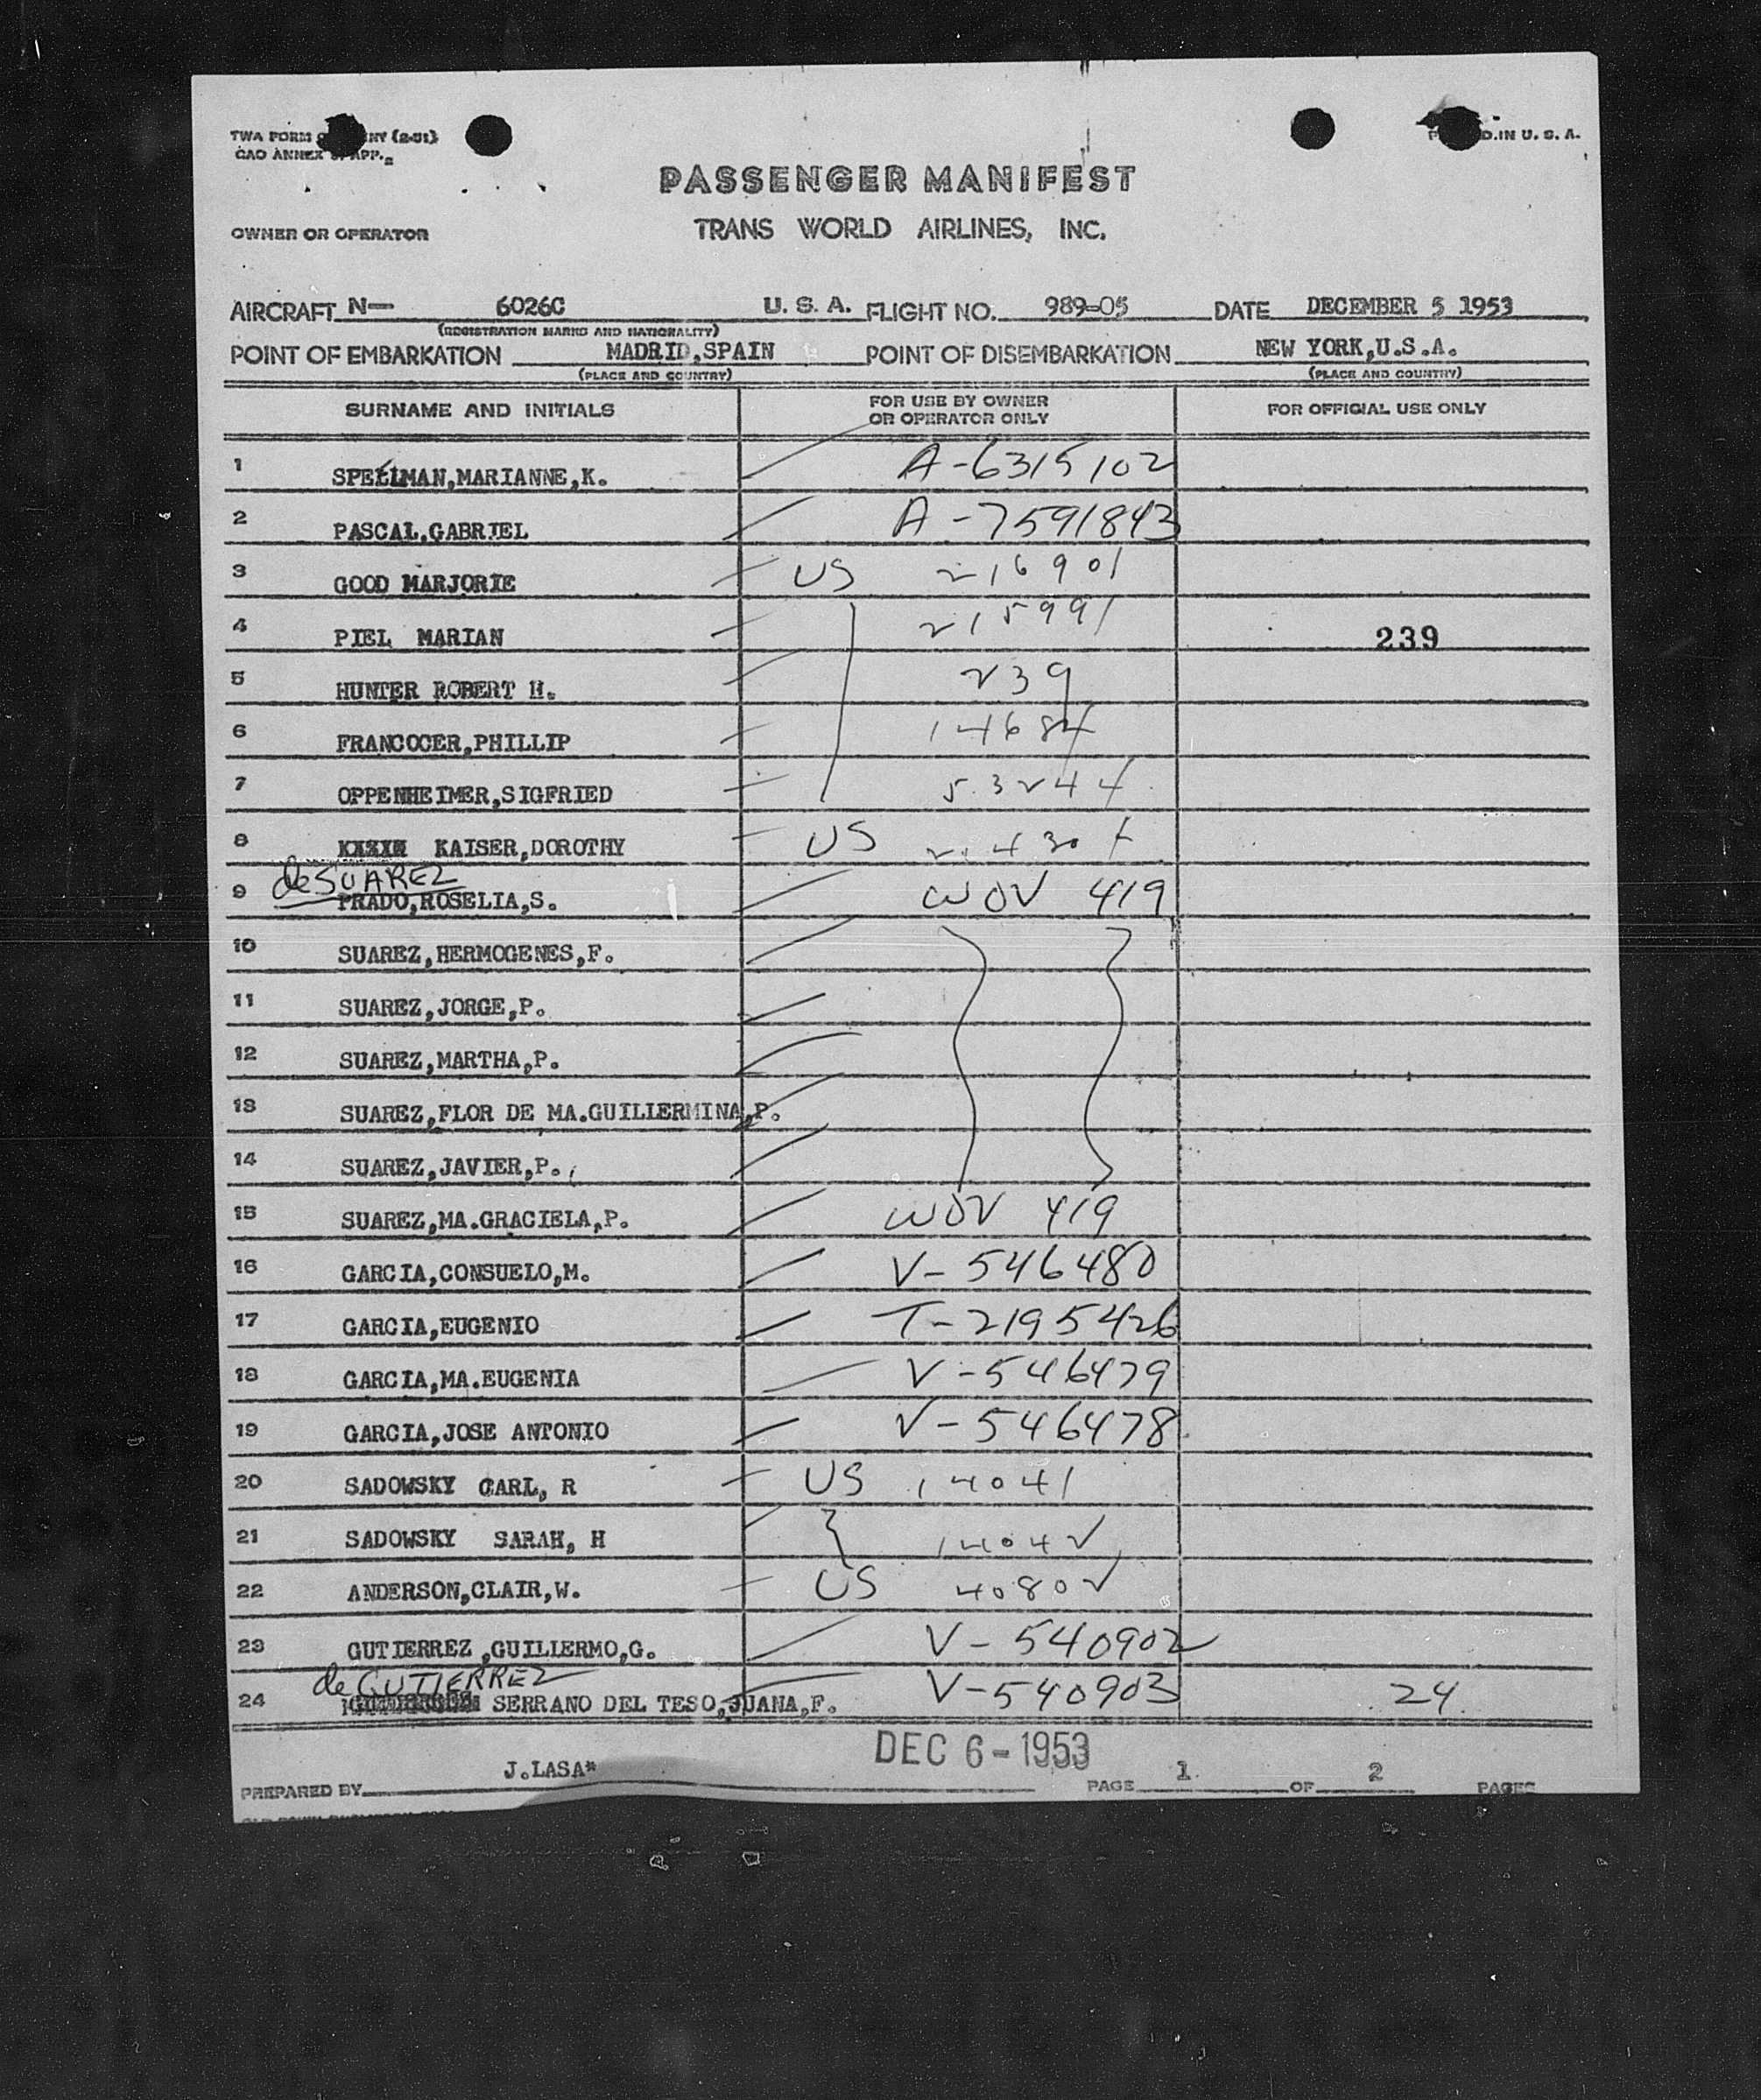 TWA FORM (2-51)
CAO ANNEX APP.
D.IN U. S. A.
PASSENGER MANIFEST
OWNER OR OPERATOR
TRANS WORLD AIRLINES, INC.
AIRCRAFT N— 6026C U. S. A. FLIGHT NO. 989-05 DATE DECEMBER 5 1953
(REGISTRATION MARKS AND NATIONALITY)
POINT OF EMBARKATION MADRID,SPAIN POINT OF DISEMBARKATION NEW YORK,U.S.A.
(PLACE AND COUNTRY) (PLACE AND COUNTRY)
SURNAME AND INITIALS FOR USE BY OWNER OR OPERATOR ONLY FOR OFFICIAL USE ONLY
1 SPELLMAN,MARIANNE,K. A-6315102
2 PASCAL,GABRIEL A-7591843
3 GOOD MARJORIE US 216901
4 PIEL MARIAN 215991 239
5 HUNTER ROBERT H. 239
6 FRANCOCER,PHILLIP 14684
7 OPPENHEIMER,SIGFRIED 53244
8 KAISER,DOROTHY US
de SUAREZ
9 PRADO,ROSELIA,S. WOV 419
10 SUAREZ,HERMOGENES,F.
11 SUAREZ,JORGE,P.
12 SUAREZ,MARTHA,P.
13 SUAREZ,FLOR DE MA.GUILLERMINA,P.
14 SUAREZ,JAVIER,P.
15 SUAREZ,MA.GRACIELA,P. WOV 419
16 GARCIA,CONSUELO,M. V-546480
17 GARCIA,EUGENIO T-2195426
18 GARCIA,MA.EUGENIA V-546479
19 GARCIA,JOSE ANTONIO V-546478
20 SADOWSKY CARL, R US 14041
21 SADOWSKY SARAH, H 14042
22 ANDERSON,CLAIR,W. US 40802
23 GUTIERREZ,GUILLERMO,G. V-540902
de GUTIERREZ
24 SERRANO DEL TESO,JUANA,F. V-540903 24
DEC 6-1953
PREPARED BY J.LASA* PAGE 1 OF 2 PAGES